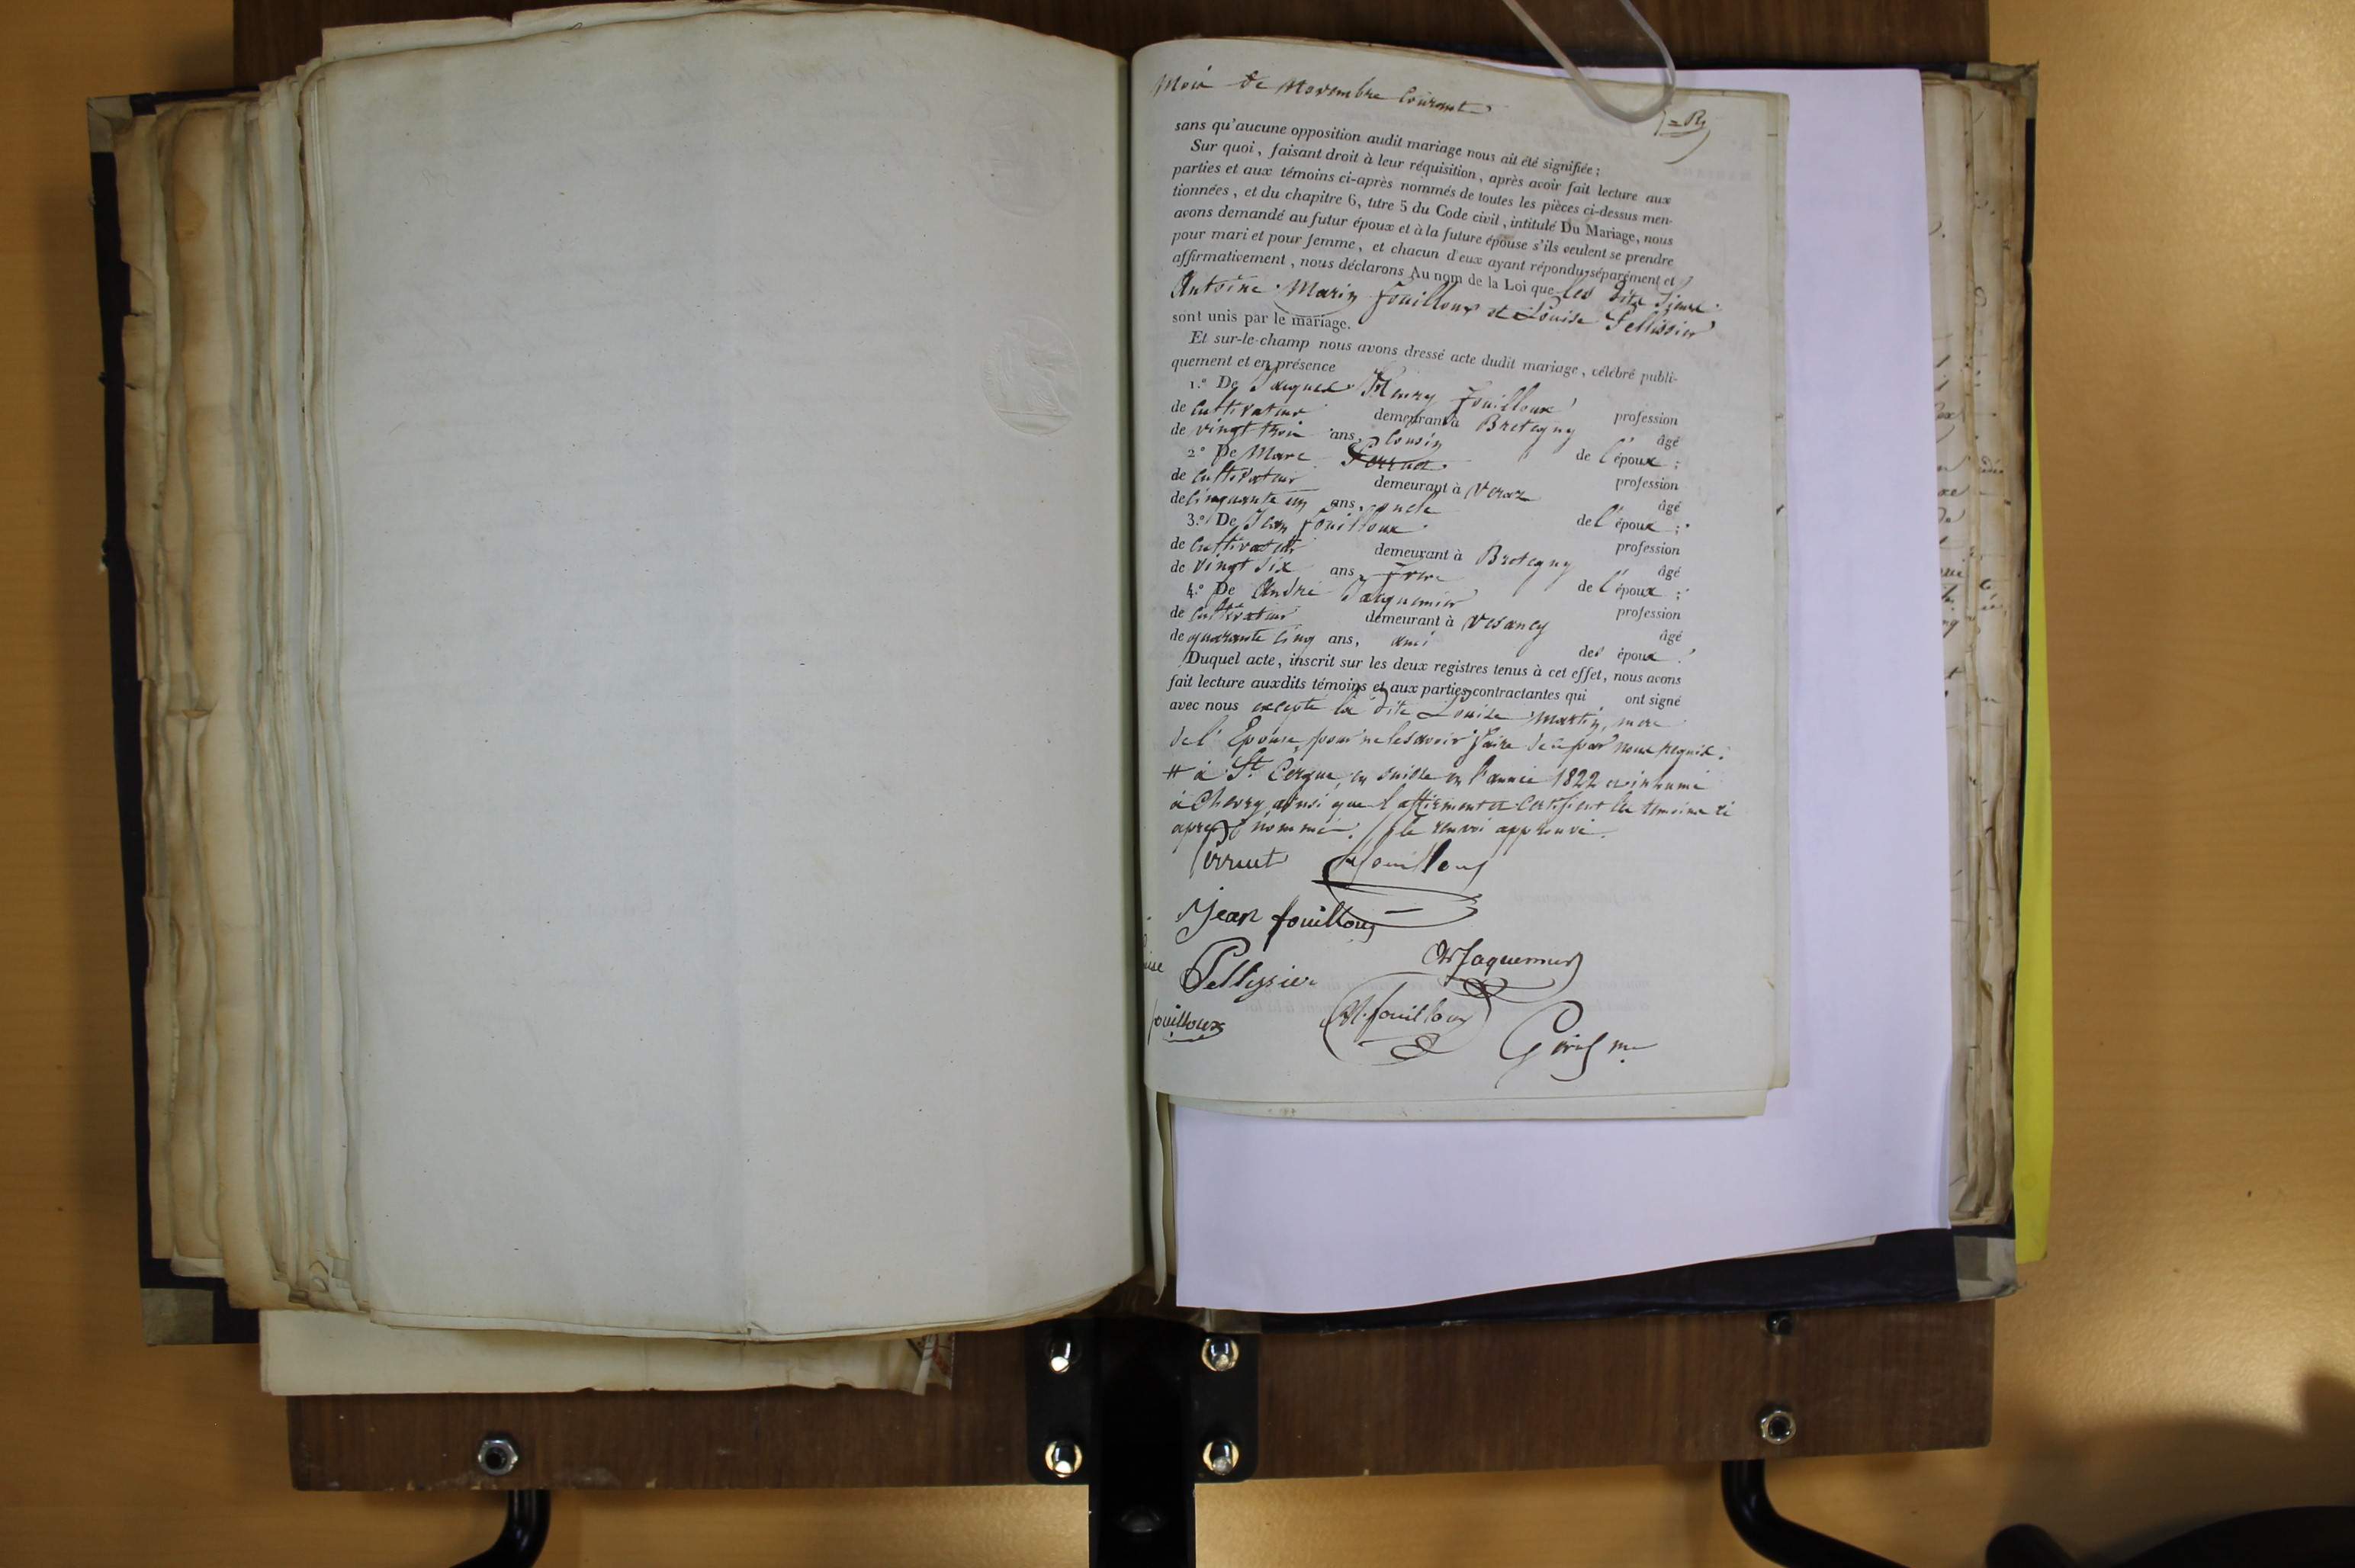 Mois de Novembre Courant
sans qu'aucune opposition audit mariage nous ait été signifiée ;
Sur quoi, faisant droit à leur réquisition, après avoir fait lecture aux
parties et aux témoins ci-après nommés de toutes les pièces ci-dessus men-
tionnées, et du chapitre 6, titre 5 du Code civil, intitulé Du Mariage, nous
avons demandé au futur époux et à la future épouse s'ils veulent se prendre
pour mari et pour femme, et chacun d'eux ayant répondu séparément et
affirmativement, nous déclarons Au nom de la Loi que les dits Sieur
Antoine Marin fouilloux et Louise Pellissier
sont unis par le mariage.
Et sur-le-champ nous avons dressé acte dudit mariage, célébré publi-
quement et en présence
1.° De Jaques Henry fouilloux profession
de Cultivateur demeurant à Bretegny âgé
de vingt trois ans, Cousin de l'époux ;
2.° De Marc Perruet profession
de Cultivateur demeurant à Veraz âgé
de Cinquante un ans, oncle de l'époux ;
3.° De Jean fouilloux profession
de Cultivateur demeurant à Bretegny âgé
de vingt six ans, frere de l'époux ;
4.° De André Jaquemier profession
de Cultivateur demeurant à Vesancy âgé
de quarante Cinq ans, ami des époux.
Duquel acte, inscrit sur les deux registres tenus à cet effet, nous avons
fait lecture auxdits témoins et aux parties contractantes qui ont signé
avec nous excepté la dite Louise Martin, mere
de l'Epouse, pour ne le savoir faire de ce par nous requis.
# à St. Cergue, en Suisse en l'année 1822 et inhumé
à Chevry ainsi que l'affirment et Certifient les temoins ci
après nommés. le renvoi approuvé.
Perruet fouilloux
Jean fouilloux
Pellissier Jaquemier
ouilloux fouilloux